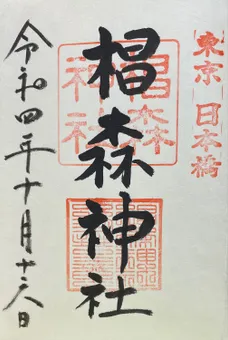 東京 日本橋
椙森神社
椙森神社
令和四年十月十六日